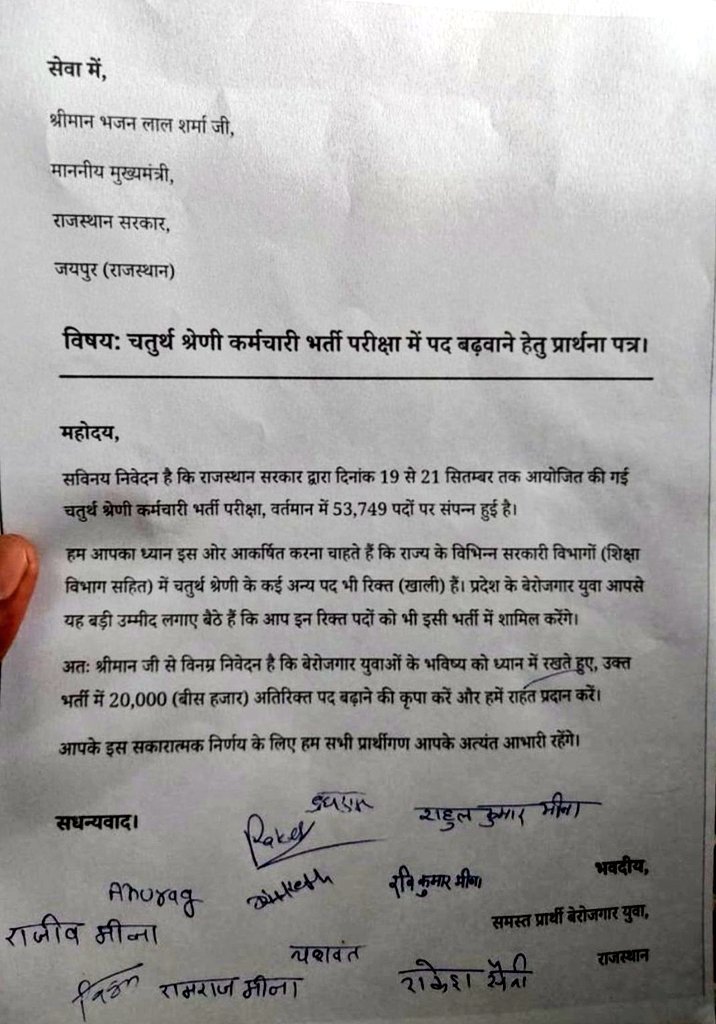 सेवा में,
श्रीमान भजन लाल शर्मा जी,
माननीय मुख्यमंत्री,
राजस्थान सरकार,
जयपुर (राजस्थान)
विषय: चतुर्थ श्रेणी कर्मचारी भर्ती परीक्षा में पद बढ़वाने हेतु प्रार्थना पत्र।
महोदय,
सविनय निवेदन है कि राजस्थान सरकार द्वारा दिनांक 19 से 21 सितम्बर तक आयोजित की गई
चतुर्थ श्रेणी कर्मचारी भर्ती परीक्षा, वर्तमान में 53,749 पदों पर संपन्न हुई है।
हम आपका ध्यान इस ओर आकर्षित करना चाहते हैं कि राज्य के विभिन्न सरकारी विभागों (शिक्षा
विभाग सहित) में चतुर्थ श्रेणी के कई अन्य पद भी रिक्त (खाली) हैं। प्रदेश के बेरोजगार युवा आपसे
यह बड़ी उम्मीद लगाए बैठे हैं कि आप इन रिक्त पदों को भी इसी भर्ती में शामिल करेंगे।
अतः श्रीमान जी से विनम्र निवेदन है कि बेरोजगार युवाओं के भविष्य को ध्यान में रखते हुए, उक्त
भर्ती में 20,000 (बीस हजार) अतिरिक्त पद बढ़ाने की कृपा करें और हमें राहत प्रदान करें।
आपके इस सकारात्मक निर्णय के लिए हम सभी प्रार्थीगण आपके अत्यंत आभारी रहेंगे।
राहुल कुमार मीना
सधन्यवाद।
भवदीय,
Anurag
रवि कुमार मीना
समस्त प्रार्थी बेरोजगार युवा,
राजीव मीना
यशवंत
राजस्थान
रामराज मीना
राकेश सैनी